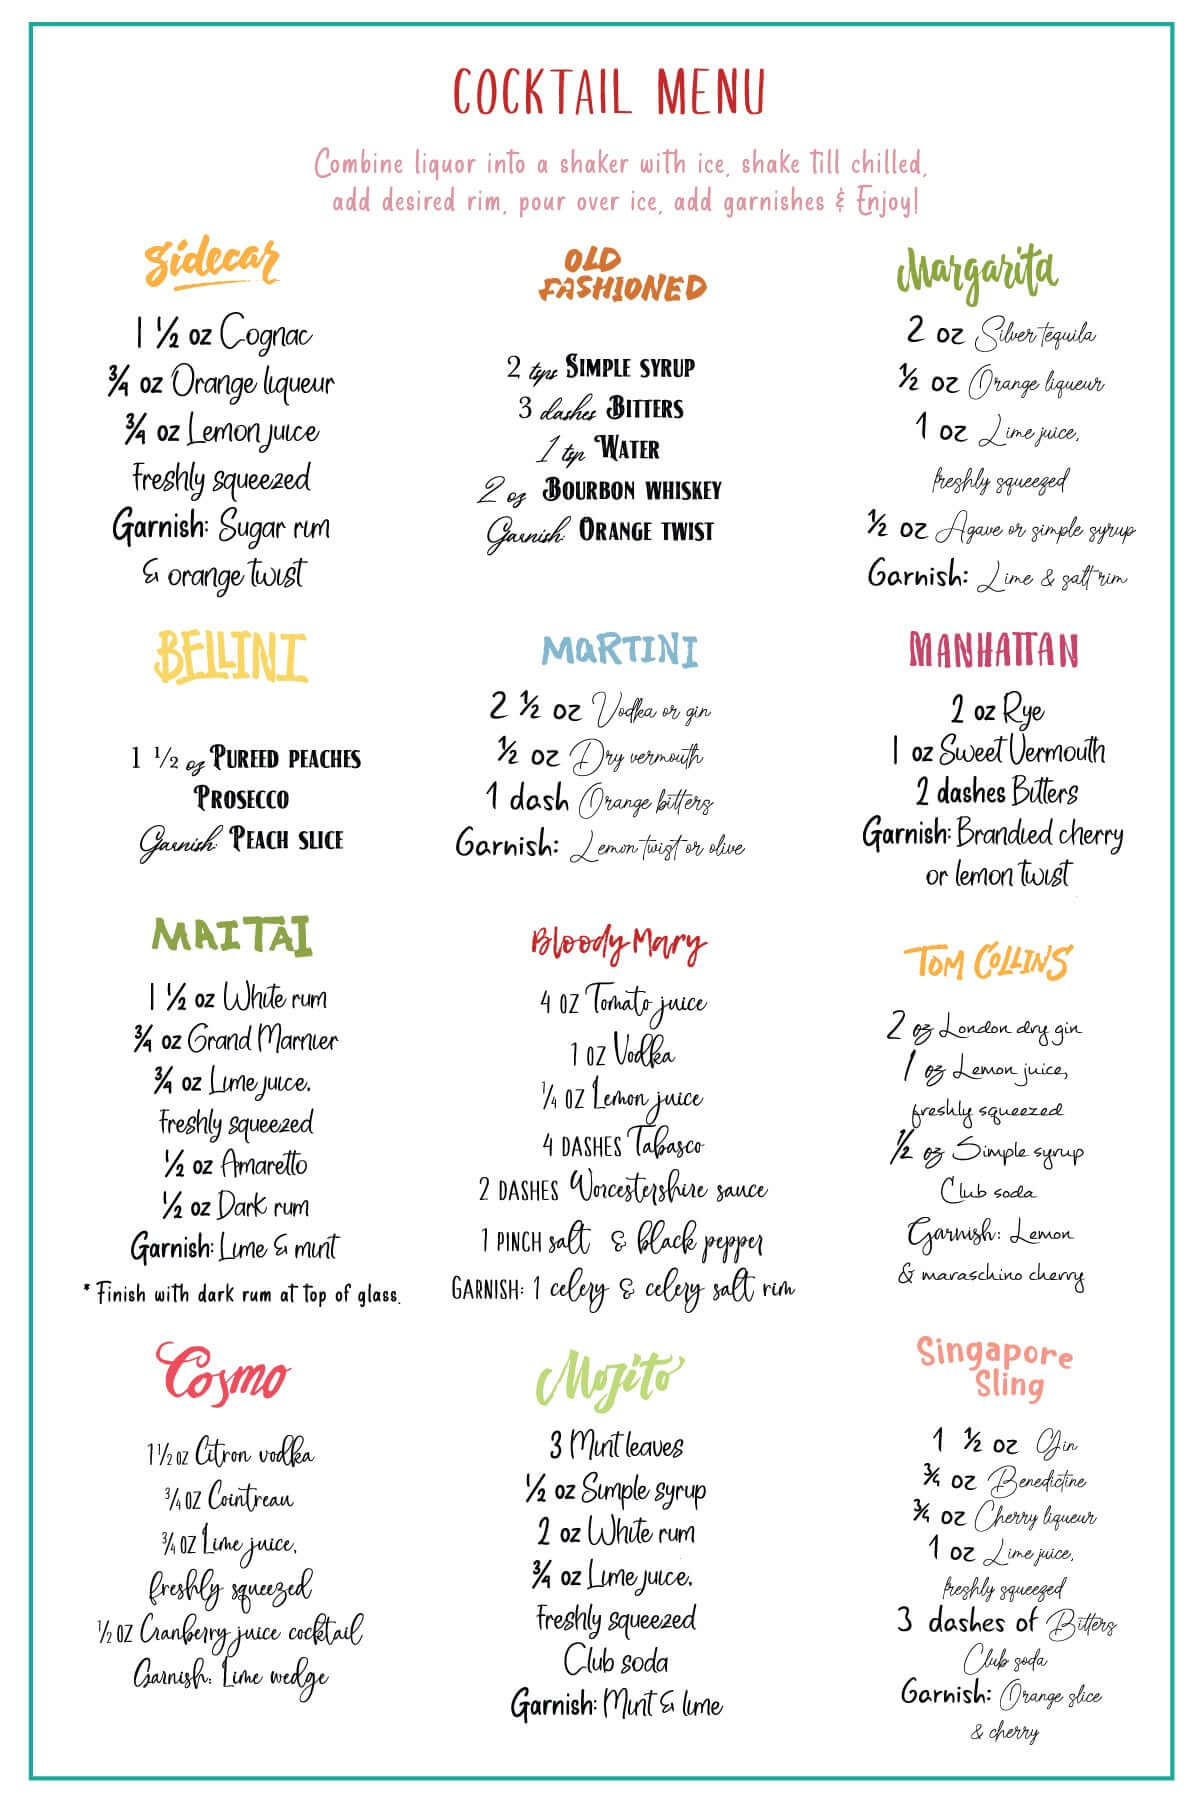 COCKTAIL MENU
Combine liquor into a shaker with ice, shake till chilled,
add desired rim, pour over ice, add garnishes & Enjoy!
Sidecar
1 ½ oz Cognac
¾ oz Orange liqueur
¾ oz Lemon juice
Freshly squeezed
Garnish: Sugar rim
& orange twist
OLD
FASHIONED
2 tsps SIMPLE SYRUP
3 dashes BITTERS
1 tsp WATER
2 oz BOURBON WHISKEY
Garnish: ORANGE TWIST
Margarita
2 oz Silver tequila
½ oz Orange liqueur
1 oz Lime juice,
freshly squeezed
½ oz Agave or simple syrup
Garnish: Lime & salt rim
BELLINI
1 ½ oz PUREED PEACHES
PROSECCO
Garnish: PEACH SLICE
MARTINI
2 ½ oz Vodka or gin
½ oz Dry vermouth
1 dash Orange bitters
Garnish: Lemon twist or olive
MANHATTAN
2 oz Rye
1 oz Sweet Vermouth
2 dashes Bitters
Garnish: Brandied cherry
or lemon twist
MAI TAI
1 ½ oz White rum
¾ oz Grand Marnier
¾ oz Lime juice,
Freshly squeezed
½ oz Amaretto
½ oz Dark rum
Garnish: Lime & mint
* Finish with dark rum at top of glass.
Bloody Mary
4 OZ Tomato juice
1 OZ Vodka
¼ OZ Lemon juice
4 DASHES Tabasco
2 DASHES Worcestershire sauce
1 PINCH salt & black pepper
GARNISH: 1 celery & celery salt rim
TOM COLLINS
2 oz London dry gin
1 oz Lemon juice,
freshly squeezed
½ oz Simple syrup
Club soda
Garnish: Lemon
& maraschino cherry
Cosmo
1 ½ OZ Citron vodka
¾ OZ Cointreau
¾ OZ Lime juice,
freshly squeezed
½ OZ Cranberry juice cocktail
Garnish: Lime wedge
Mojito
3 Mint leaves
½ oz Simple syrup
2 oz White rum
¾ oz Lime juice,
Freshly squeezed
Club soda
Garnish: Mint & lime
Singapore
Sling
1 ½ oz Gin
¾ oz Benedictine
¾ oz Cherry liqueur
1 oz Lime juice,
freshly squeezed
3 dashes of Bitters
Club soda
Garnish: Orange slice
& cherry